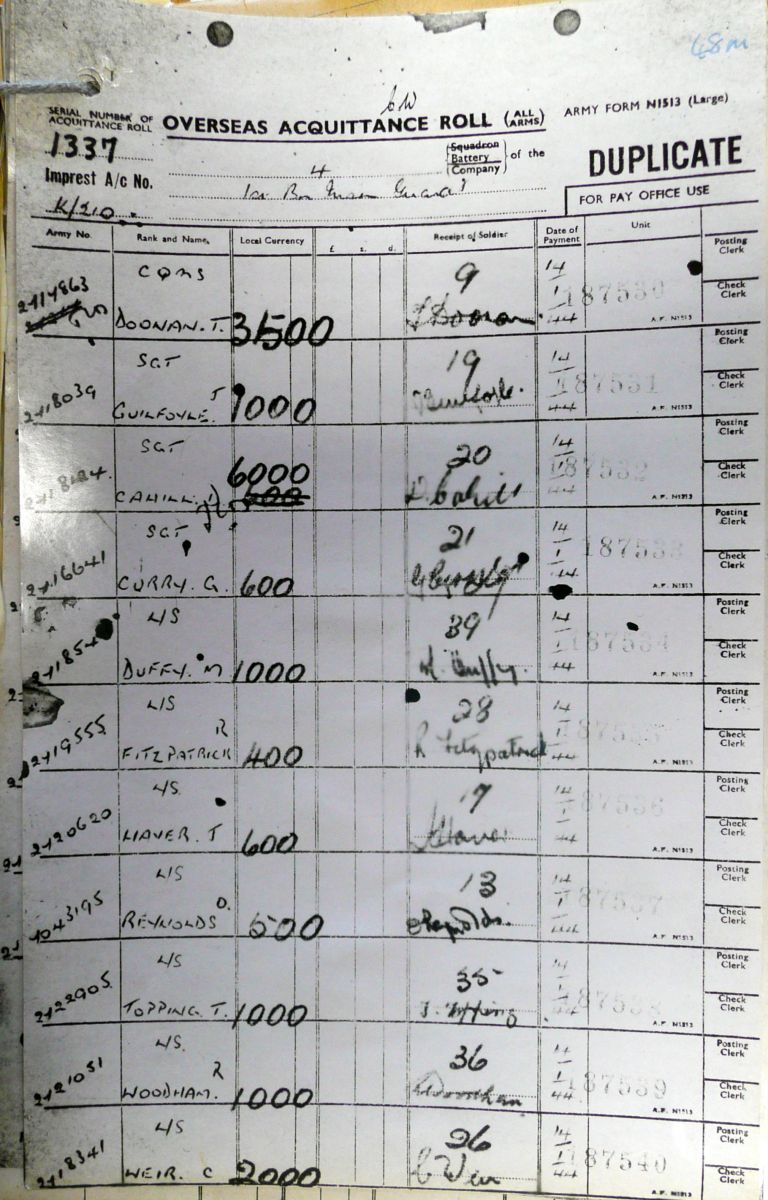 68m
SERIAL NUMBER OF
ACQUITTANCE ROLL
OVERSEAS ACQUITTANCE ROLL (ALL ARMS)
ARMY FORM N1513 (Large)
1337
4
Squadron
Battery
Company
of the
DUPLICATE
Imprest A/c No.
1st Bn Guards
FOR PAY OFFICE USE
K/210
Army No.
Rank and Name
Local Currency
£
s.
d.
Receipt of Soldier
Date of
Payment
Unit
Posting
Clerk
CQMS
9
14
2714863
1
187530
Check
Clerk
DOONAN. T.
31500
44
A.F. N1513
Posting
Clerk
SGT
19
14
J
1
187531
Check
Clerk
2718039
GUILFOYLE.
1000
44
A.F. N1513
Posting
Clerk
SGT
20
14
6000
187532
Check
Clerk
CAHILL.
D. Cahill
44
A.F. N1513
Posting
Clerk
SGT
21
14
2716641
1
187533
Check
Clerk
CURRY. G.
600
44
A.F. N1513
Posting
Clerk
L/S
39
14
1
187534
Check
Clerk
DUFFY. M
1000
M. Duffy.
44
Posting
Clerk
L/S
28
14
2719555
R
1
Check
Clerk
FITZPATRICK
400
R Fitzpatrick
44
A.F. N1513
Posting
Clerk
L/S
17
14
2720620
1
187536
Check
Clerk
T
600
44
A.F. N1513
Posting
Clerk
L/S
13
14
O.
1
187537
Check
Clerk
1043195
REYNOLDS
500
Reynolds.
44
A.F. N1513
Posting
Clerk
L/S
35
14
2722905
1
187538
Check
Clerk
TOPPING. T.
1000
T. Topping
44
A.F. N1513
Posting
Clerk
L/S
36
14
2721051
R
1
187539
Check
Clerk
WOODHAM.
1000
Woodham
44
A.F. N1513
Posting
Clerk
L/S
26
14
2718341
1
187540
Check
Clerk
WEIR. C
2000
C Weir
44
A.F. N1513